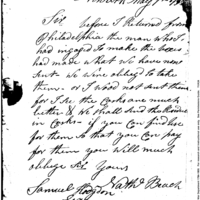 Newark May
Sir before I Returnd from
Philadelphia the man who I
had ingagd to make the boxes
had made what we have now
sent. We were oblegd to take
them. or I wood not sent them
for I see the Casks are much
better & We shall send the
in Casks if you can
for them So that you Can pay
for them you will much
oblege Sir Yours
Samuel Hodgdon Nathl Beach